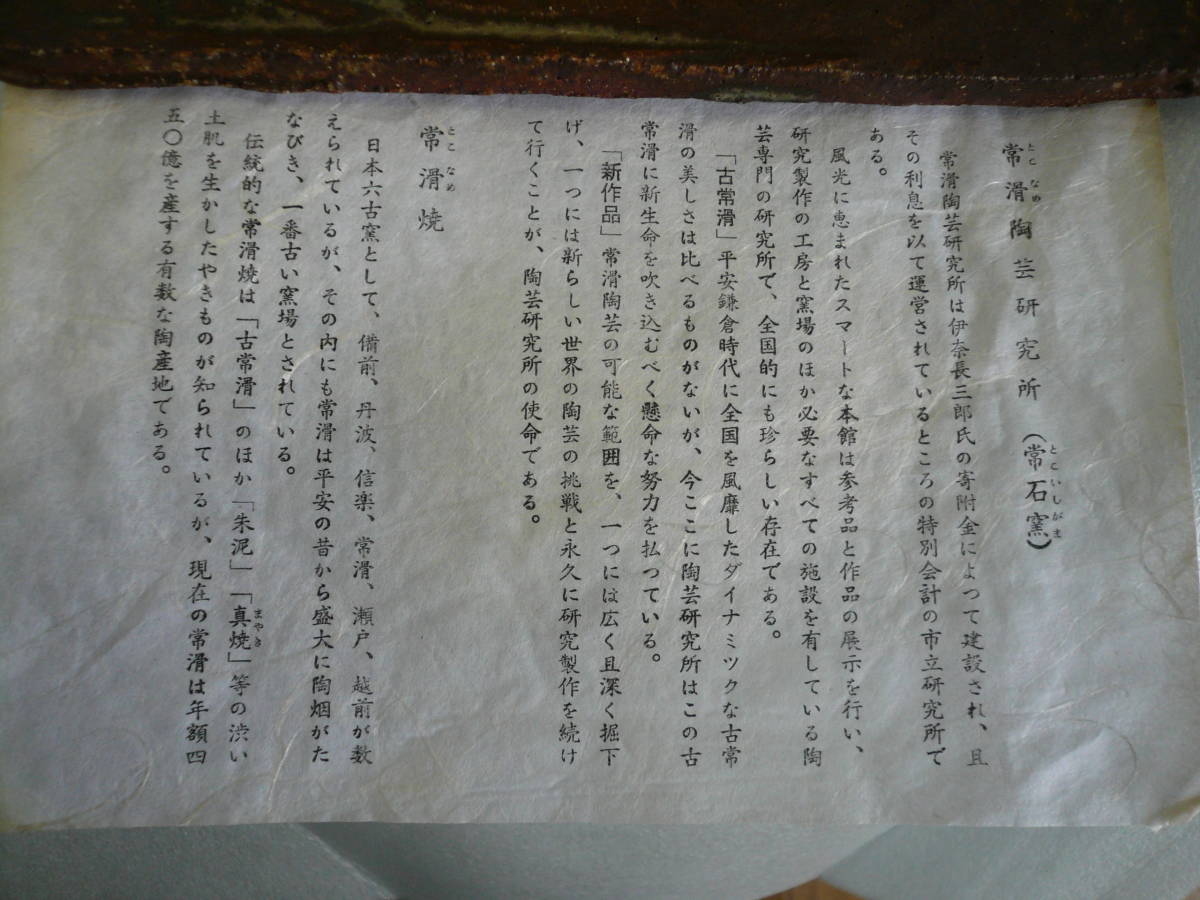 常滑陶芸研究所（常石窯）
常滑陶芸研究所は伊奈長三郎氏の寄附金によつて建設され、且
その利息を以て運営されているところの特別会計の市立研究所で
ある。
風光に恵まれたスマートな本館は参考品と作品の展示を行い、
研究製作の工房と窯場のほか必要なすべての施設を有している陶
芸専門の研究所で、全国的にも珍らしい存在である。
「古常滑」平安鎌倉時代に全国を風靡したダイナミツクな古常
滑の美しさは比べるものがないが、今ここに陶芸研究所はこの古
常滑に新生命を吹き込むべく懸命な努力を払つている。
「新作品」常滑陶芸の可能な範囲を、一つには広く且深く掘下
げ、一つには新らしい世界の陶芸の挑戦と永久に研究製作を続け
て行くことが、陶芸研究所の使命である。
常滑焼
日本六古窯として、備前、丹波、信楽、常滑、瀬戸、越前が数
えられているが、その内にも常滑は平安の昔から盛大に陶烟がた
なびき、一番古い窯場とされている。
伝統的な常滑焼は「古常滑」のほか「朱泥」「真焼」等の渋い
土肌を生かしたやきものが知られているが、現在の常滑は年額四
五〇億を産する有数な陶産地である。